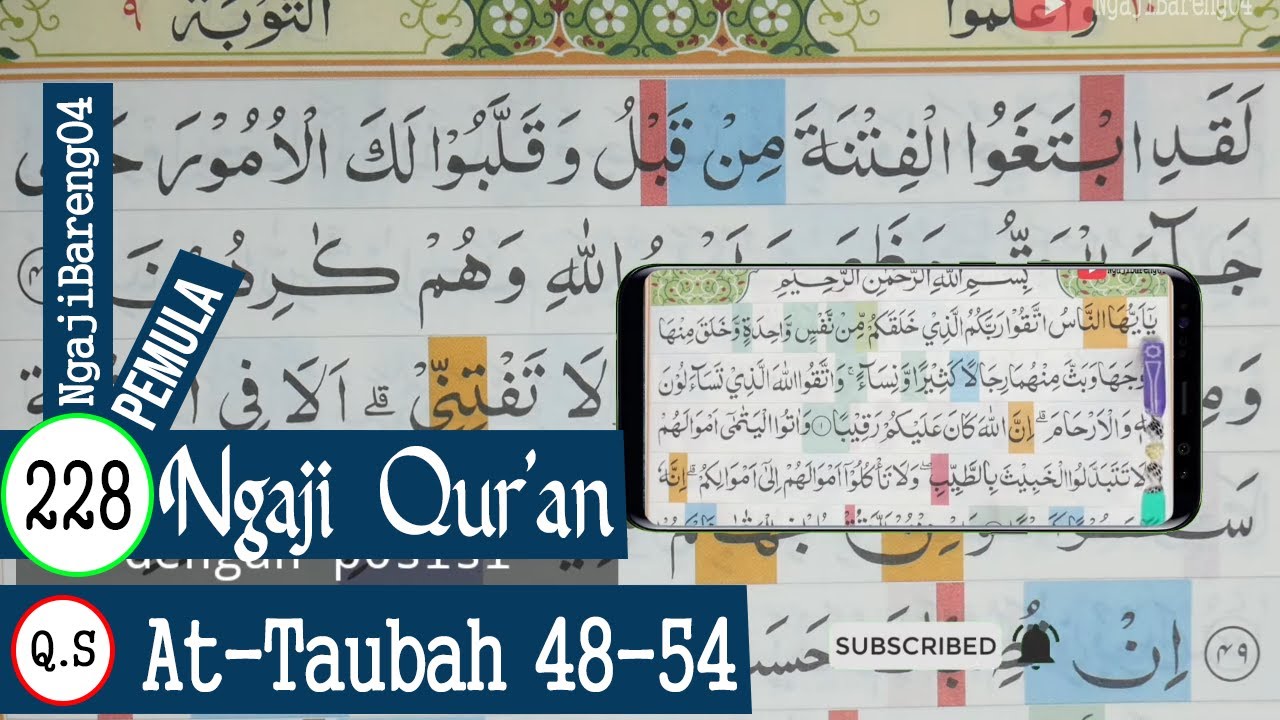 التوبة ٩
واعلموا
NgajiBareng04
لَقَدِ ابْتَغَوُا الْفِتْنَةَ مِنْ قَبْلُ وَقَلَّبُوْا لَكَ الْاُمُوْرَ
اللّٰهِ وَهُمْ كٰرِهُوْنَ
لَا تَفْتِنِّيْ ۗ اَلَا فِى
اِنْ
٤٩
NgajiBareng04
PEMULA
بِسْمِ اللّٰهِ الرَّحْمٰنِ الرَّحِيْمِ
يٰٓاَيُّهَا النَّاسُ اتَّقُوْا رَبَّكُمُ الَّذِيْ خَلَقَكُمْ مِّنْ نَّفْسٍ وَّاحِدَةٍ وَّخَلَقَ مِنْهَا
زَوْجَهَا وَبَثَّ مِنْهُمَا رِجَالًا كَثِيْرًا وَّنِسَاۤءً ۚ وَاتَّقُوا اللّٰهَ الَّذِيْ تَسَاۤءَلُوْنَ
بِهٖ وَالْاَرْحَامَ ۗ اِنَّ اللّٰهَ كَانَ عَلَيْكُمْ رَقِيْبًا ١ وَاٰتُوا الْيَتٰمٰٓى اَمْوَالَهُمْ
وَلَا تَتَبَدَّلُوا الْخَبِيْثَ بِالطَّيِّبِ ۖ وَلَا تَأْكُلُوْٓا اَمْوَالَهُمْ اِلٰٓى اَمْوَالِكُمْ ۗ اِنَّهٗ
228 Ngaji Qur'an
dengan posisi
Q.S At-Taubah 48-54
SUBSCRIBED